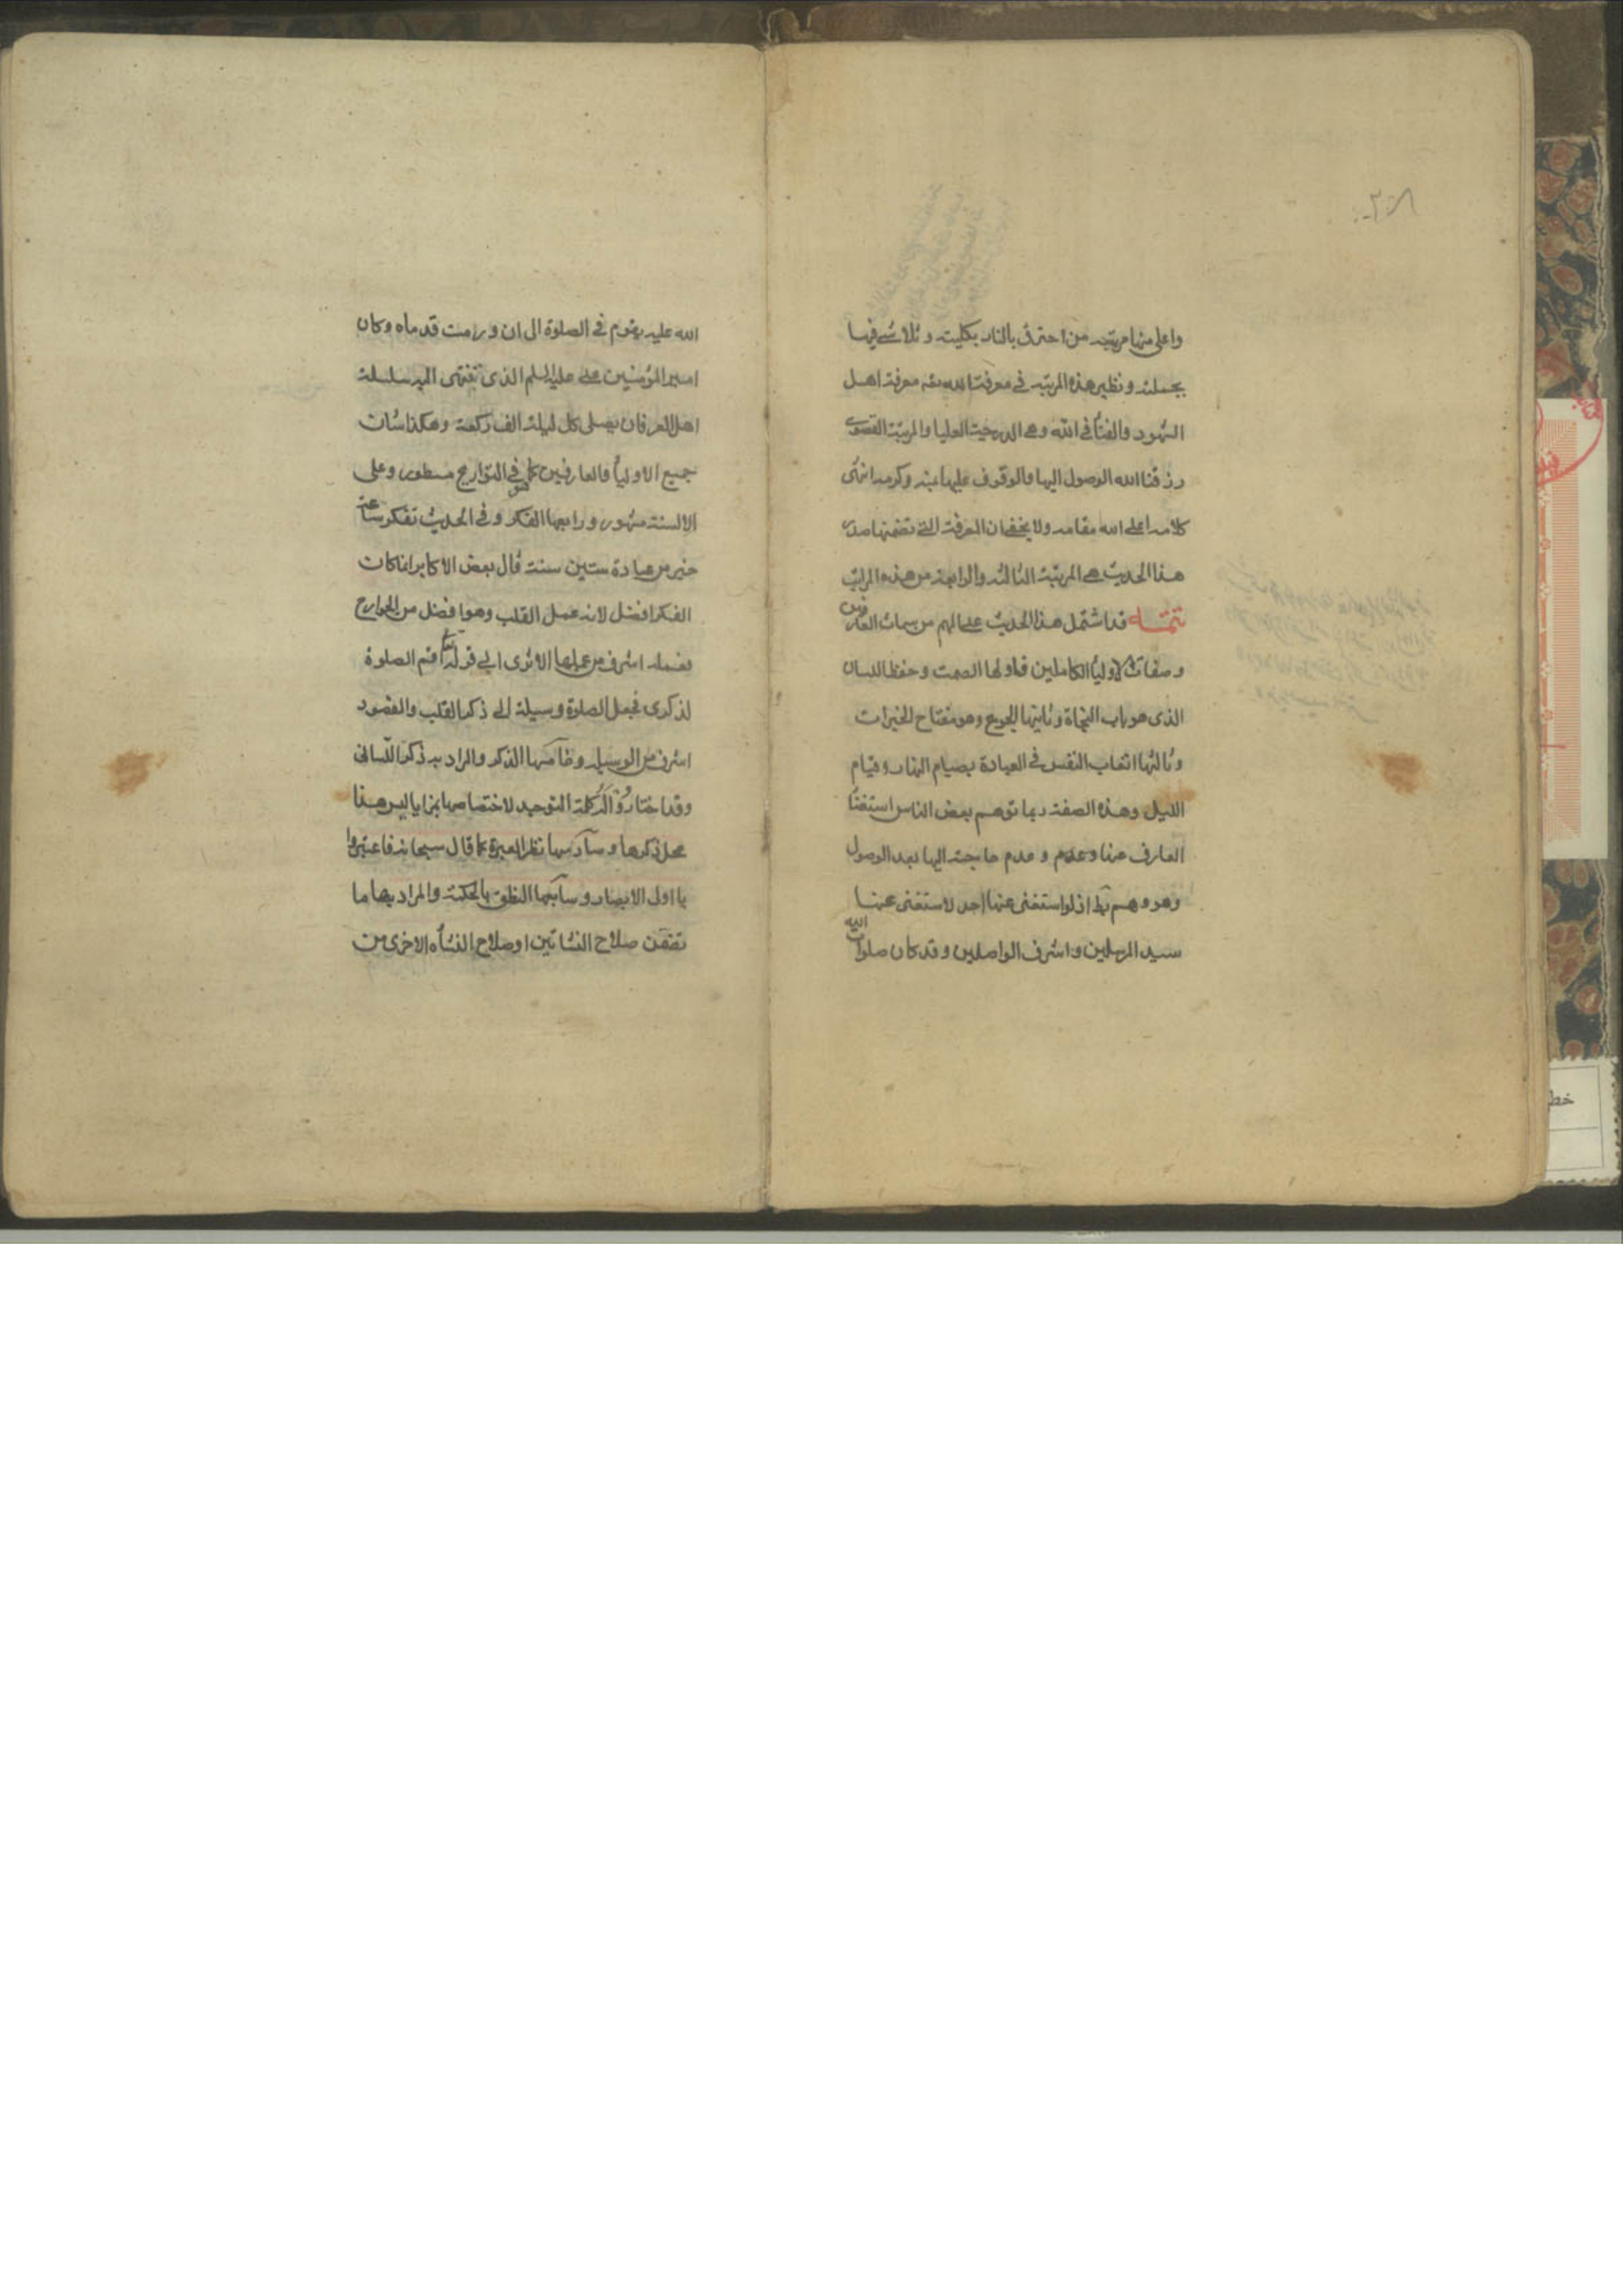 واعلی منها مرتبه من احترق بالنار بکلیته وتلاشی فیها
بجملته ونظیر هذه المرتبه فی معرفة الله تعه معرفة اهل
الشهود والفنآ فی الله وهی الدرجة العلیا والمرتبة القصوی
رزقنا الله الوصول الیها والوقوف علیها بمنه وکرمه انتهی
کلامه اعلی الله مقامه ولا یخفی ان المعرفة التی تضمنها صدر
هذا الحدیث هی المرتبة الثالثه والرابعة من هذه المراتب
تتمـــه قد اشتمل هذا الحدیث علی المهم من سمات العارفین
وصفات الاولیآ الکاملین فاولها الصمت وحفظ اللسان
الذی هو باب النجاة وثانیها الجوع وهو مفتاح الخیرات
وثالثها اتعاب النفس فی العبادة بصیام النهار وقیام
اللیل وهذه الصفة ربما توهم بعض الناس استغنآ
العارف عنها وعدم وعدم حاجته الیها بعد الوصول
وهو وهم بط اذ لو استغنی عنها احد لاستغنی عنها
سید المرسلین واشرف الواصلین وقد کان صلوات الله
الله علیه یقوم فی الصلوة الی ان ورمت قدماه وکان
امیر المؤمنین علی علیه السلم الذی تنتهی الیه سلسلة
اهل العرفان یصلی کل لیلة الف رکعة وهکذا شان
جمیع الاولیآ والعارفین کما هو فی التواریخ مسطور وعلی
الالسنة مشهور ورابعها الفکر وفی الحدیث تفکر ساعة
خیر من عبادة ستین سنة قال بعض الاکابر انما کان
الفکر افضل لانه عمل القلب وهو افضل من الجوارح
فعمله اشرف من عملها الا تری الی قوله تعا اقم الصلوة
لذکری فجعل الصلوة وسیلة الی ذکر القلب والمقصود
اشرف من الوسیله وخامسها الذکر والمراد به ذکر اللسانی
وقد اختاروا له کلمة التوحید لاختصاصها بمزایا لیس هذا
محل ذکرها وسادسها نظر العبرة کما قال سبحانه فاعتبروا
یا اولی الابصار وسابعها النطق بالحکمة والمراد بها ما
تضمن صلاح النشاتین او صلاح النشأه الاخری من